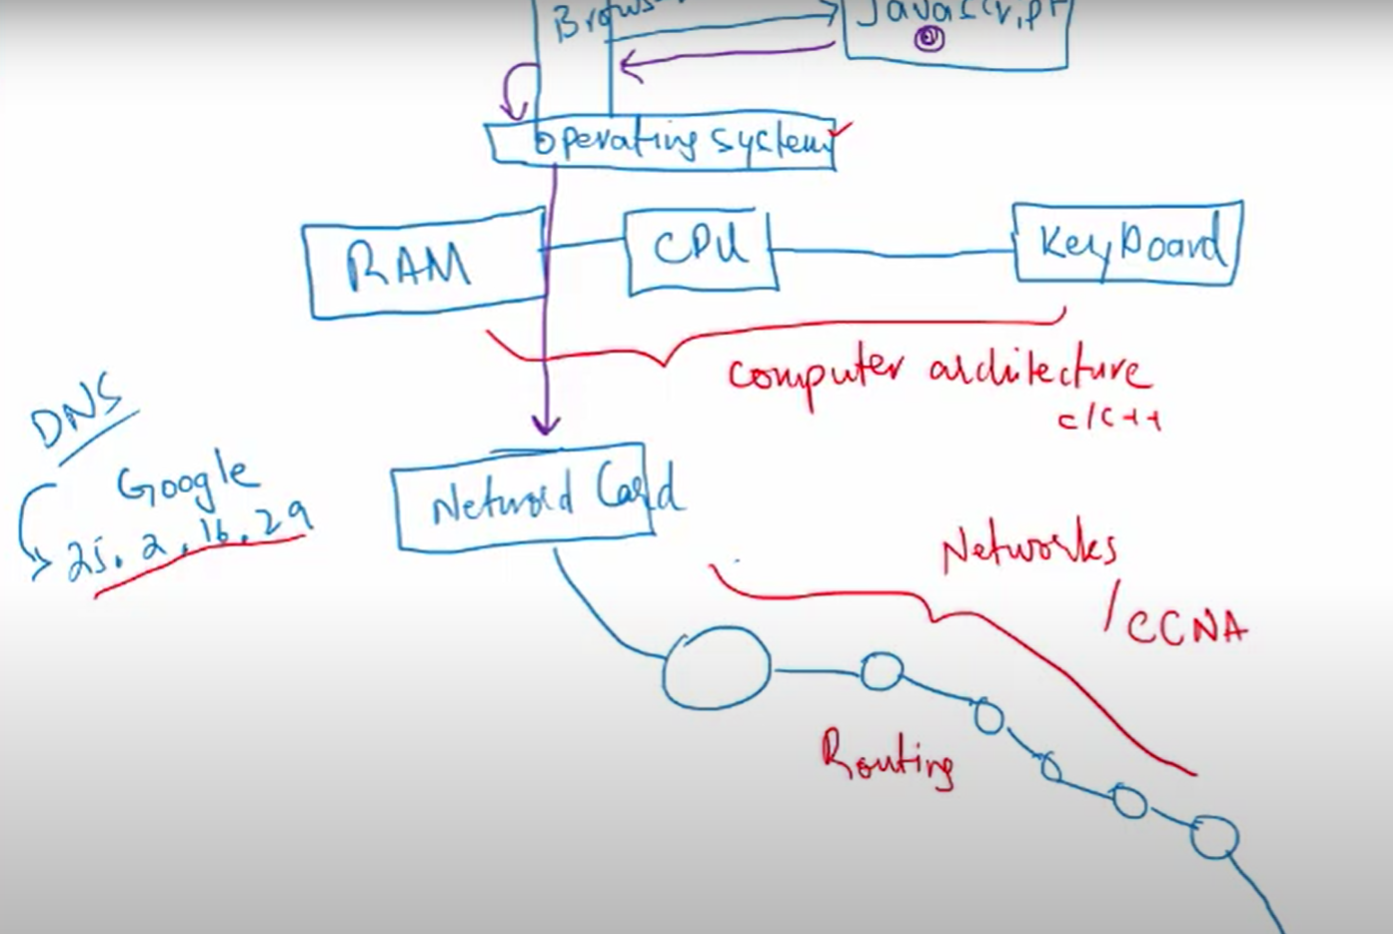 Javascript
Operating system
RAM
CPU
Keyboard
computer architecture
c/c++
DNS
Google
25.2.16.29
Card
Networks
/CCNA
Routing